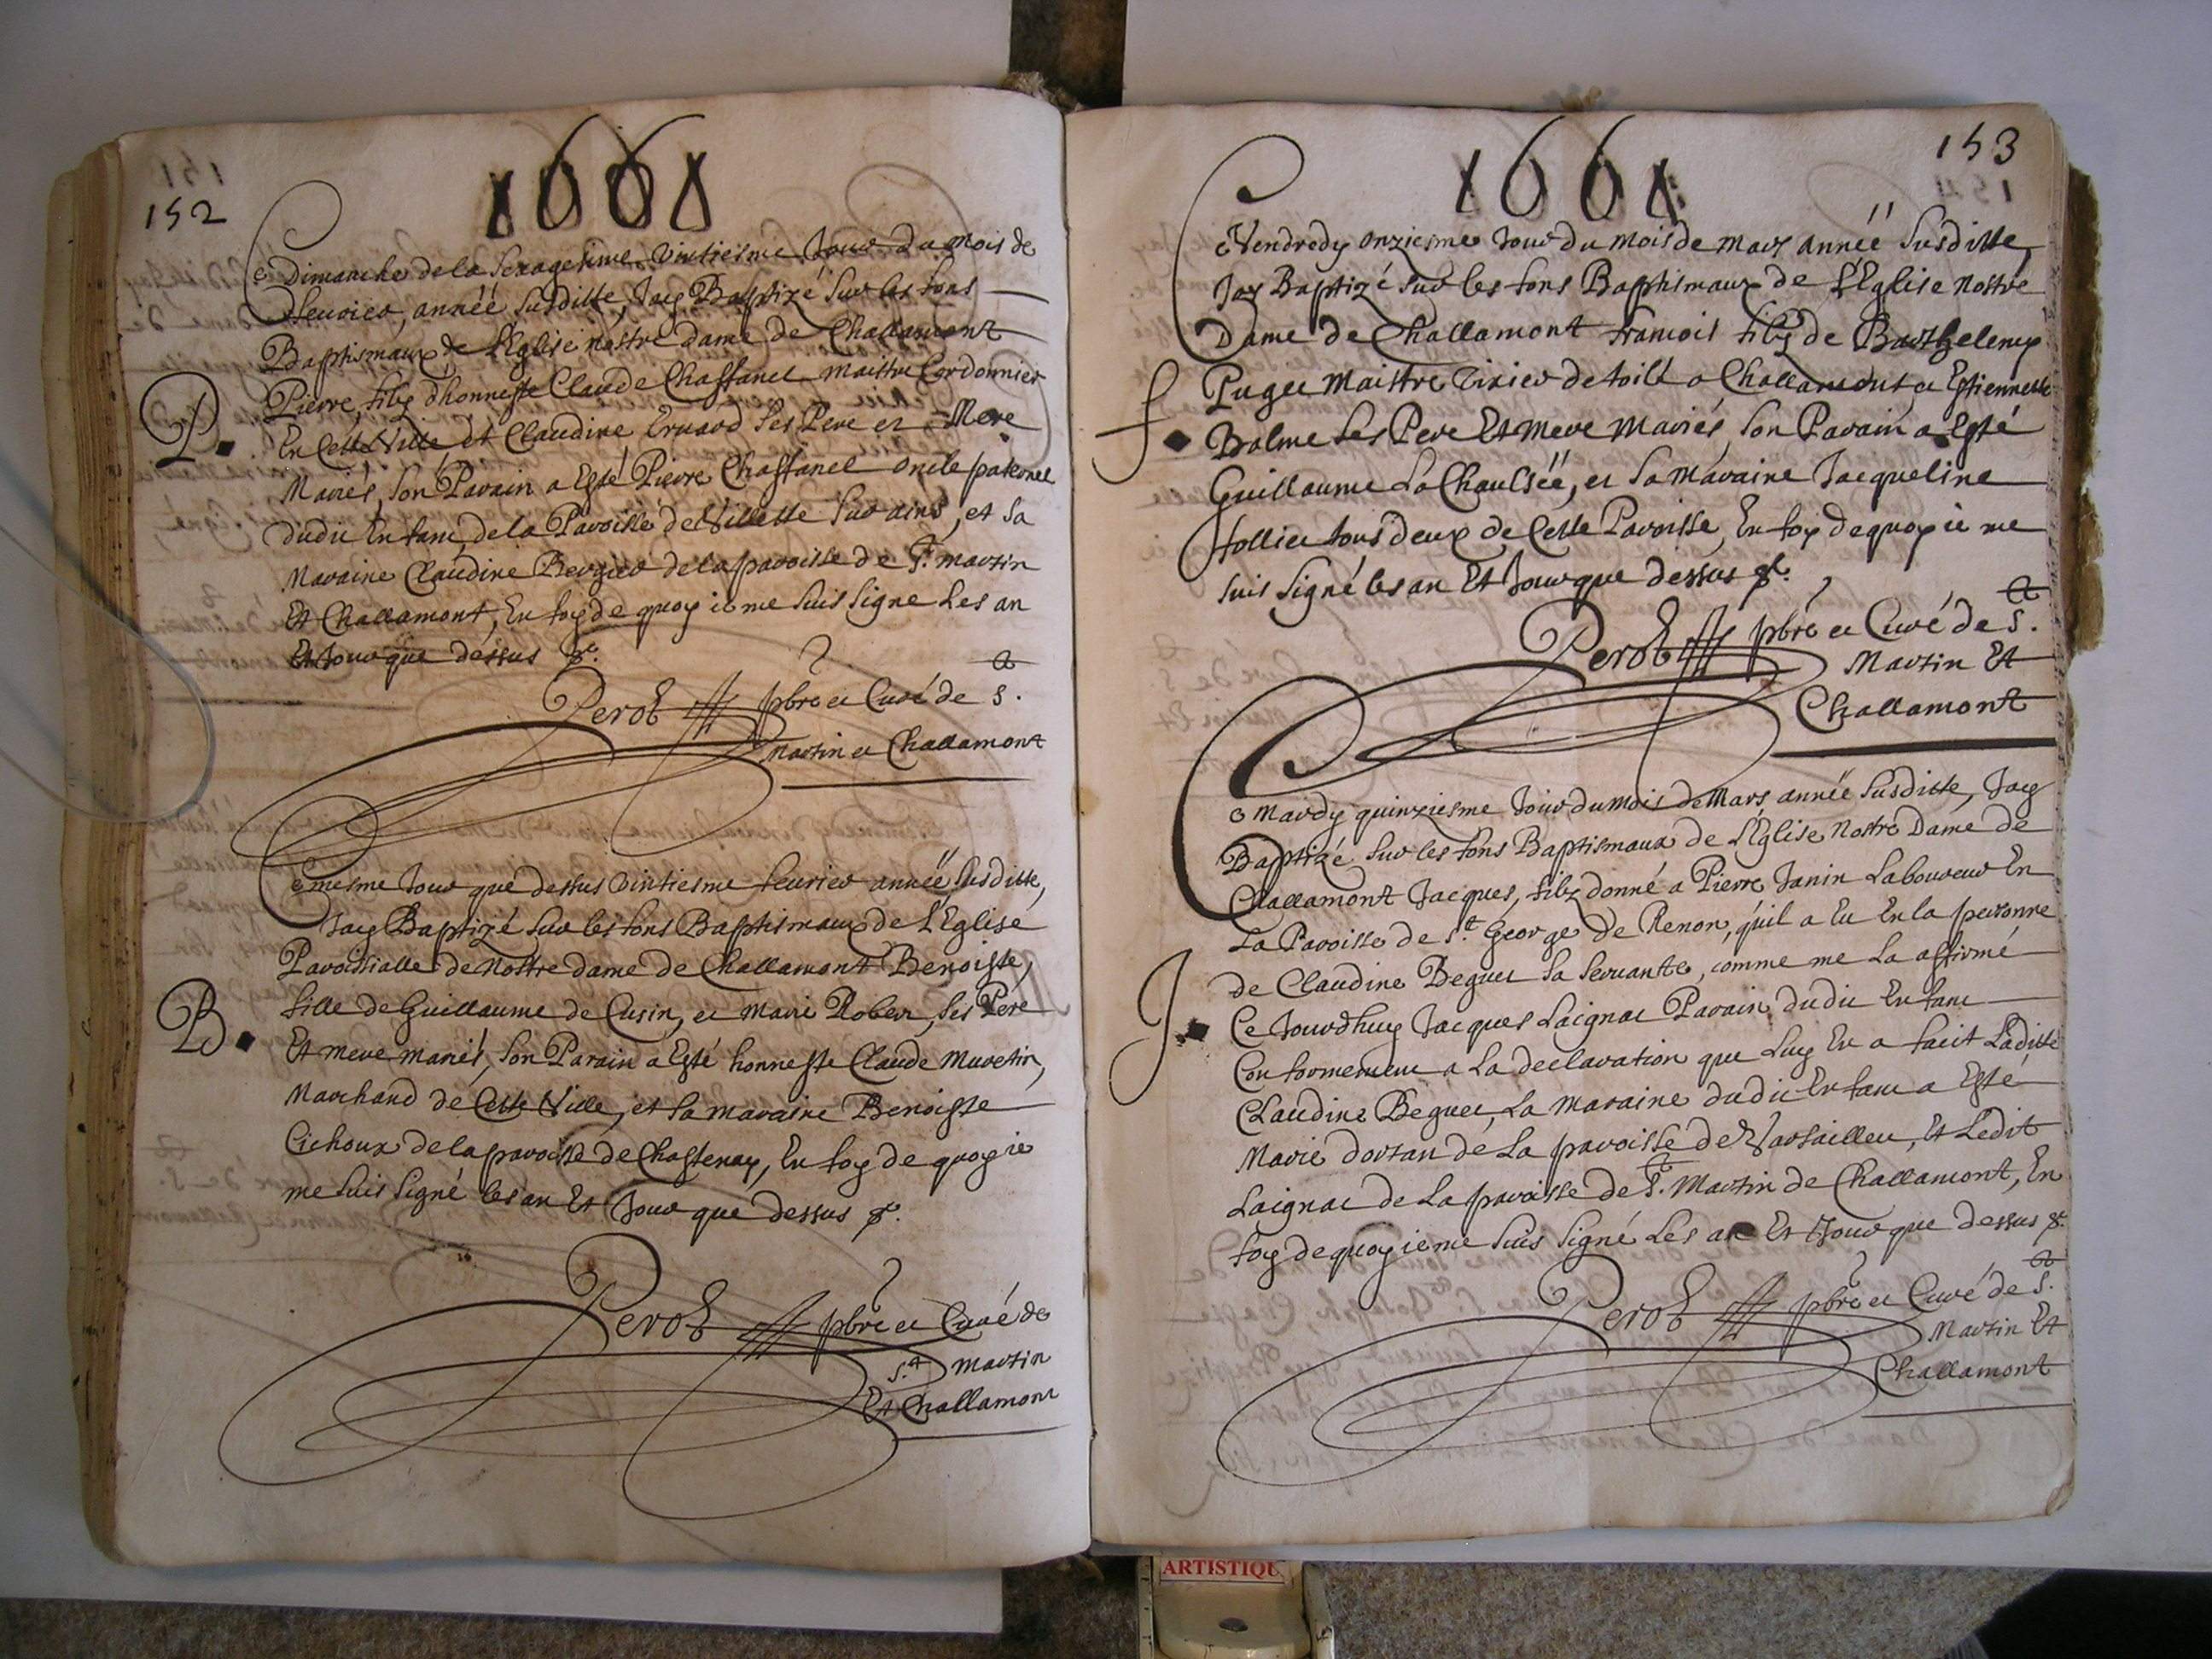 152
1661
Ce Dimanche de la Sexagesime vintiesme Jour du mois de
feurier, année Susditte, Jay Baptizé Sur les fons
Baptismaux de L'Eglise nostre dame de Challamont
Pierre, filz d'honneste Claude Chassanel maistre Cordonnier
En Cette Ville et Claudine Eruard Ses Pere et Mere
Mariés, Son Parain a Esté Pierre Chassanel oncle paternel
dudit Enfant, de la Paroisse de Villette Sur ains, et Sa
Maraine Claudine Bergier de la paroisse de St. martin
Et Challamont, En foy de quoy ie me suis Signe Les an
Et Jour que dessus &c.
P.
Perot pbre et Curé de S.t
Martin et Challamont
Ce mesme Jour que dessus vintiesme feurier année Susditte,
Jay Baptizé Sur les fons Baptismaux de L'Eglise
Paroissialle de Nostre dame de Challamont Benoiste,
fille de Guillaume de Cusin, et Marie Rober, Ses Pere
Et mere mariés, Son Parain a Esté honneste Claude Muretin,
Marchand de Cette Ville, et Sa maraine Benoiste
Cichoux de la paroisse de Chastenay, En foy de quoy ie
me suis Signé les an Et Jour que dessus &c.
B.
Perot pbre et Curé de
S.t Martin
Et Challamont
153
1661
Ce Vendredy onziesme Jour du mois de mars année Susditte,
Jay Baptizé Sur les fons Baptismaux de L'Eglise Nostre
Dame de Challamont francois filz de Barthelemy
Puget Maistre Tixier de toile a Challamont et Estiennette
Balme Ses Pere Et mere Mariés, Son Parain a Esté
Guillaume La Chaulseé, et Sa Maraine Jacqueline
Hollier tous deux de Cette Paroisse, En foy de quoy ie me
Suis Signé les an Et Jour que dessus &c.
f.
Perot pbre et Curé de S.t
Martin Et
Challamont
Ce Mardy quinziesme Jour du Mois de Mars année Susditte, Jay
Baptizé Sur les fons Baptismaux de L'Eglise Nostre Dame de
Challamont Jacques, filz donné a Pierre Janin Laboureur En
La Paroisse de S.t George de Renon, qu'il a Eu En la personne
de Claudine Beguet Sa Seruante, comme me La affirmé
Ce Jourdhuy Jacques Laignac Parain dudit Enfant
Conformement a La declaration que Luy En a fait Laditte
Claudine Beguet, La maraine dudit Enfant a Esté
Marie dortan de La paroisse de Versailleu, Et Ledit
Laignac de La paroisse de S.t Martin de Challamont, En
foy de quoy ie me Suis Signé Les an Et Jour que dessus &c.
J.
Perot pbre et Curé de S.t
Martin Et
Challamont
ARTISTIQU